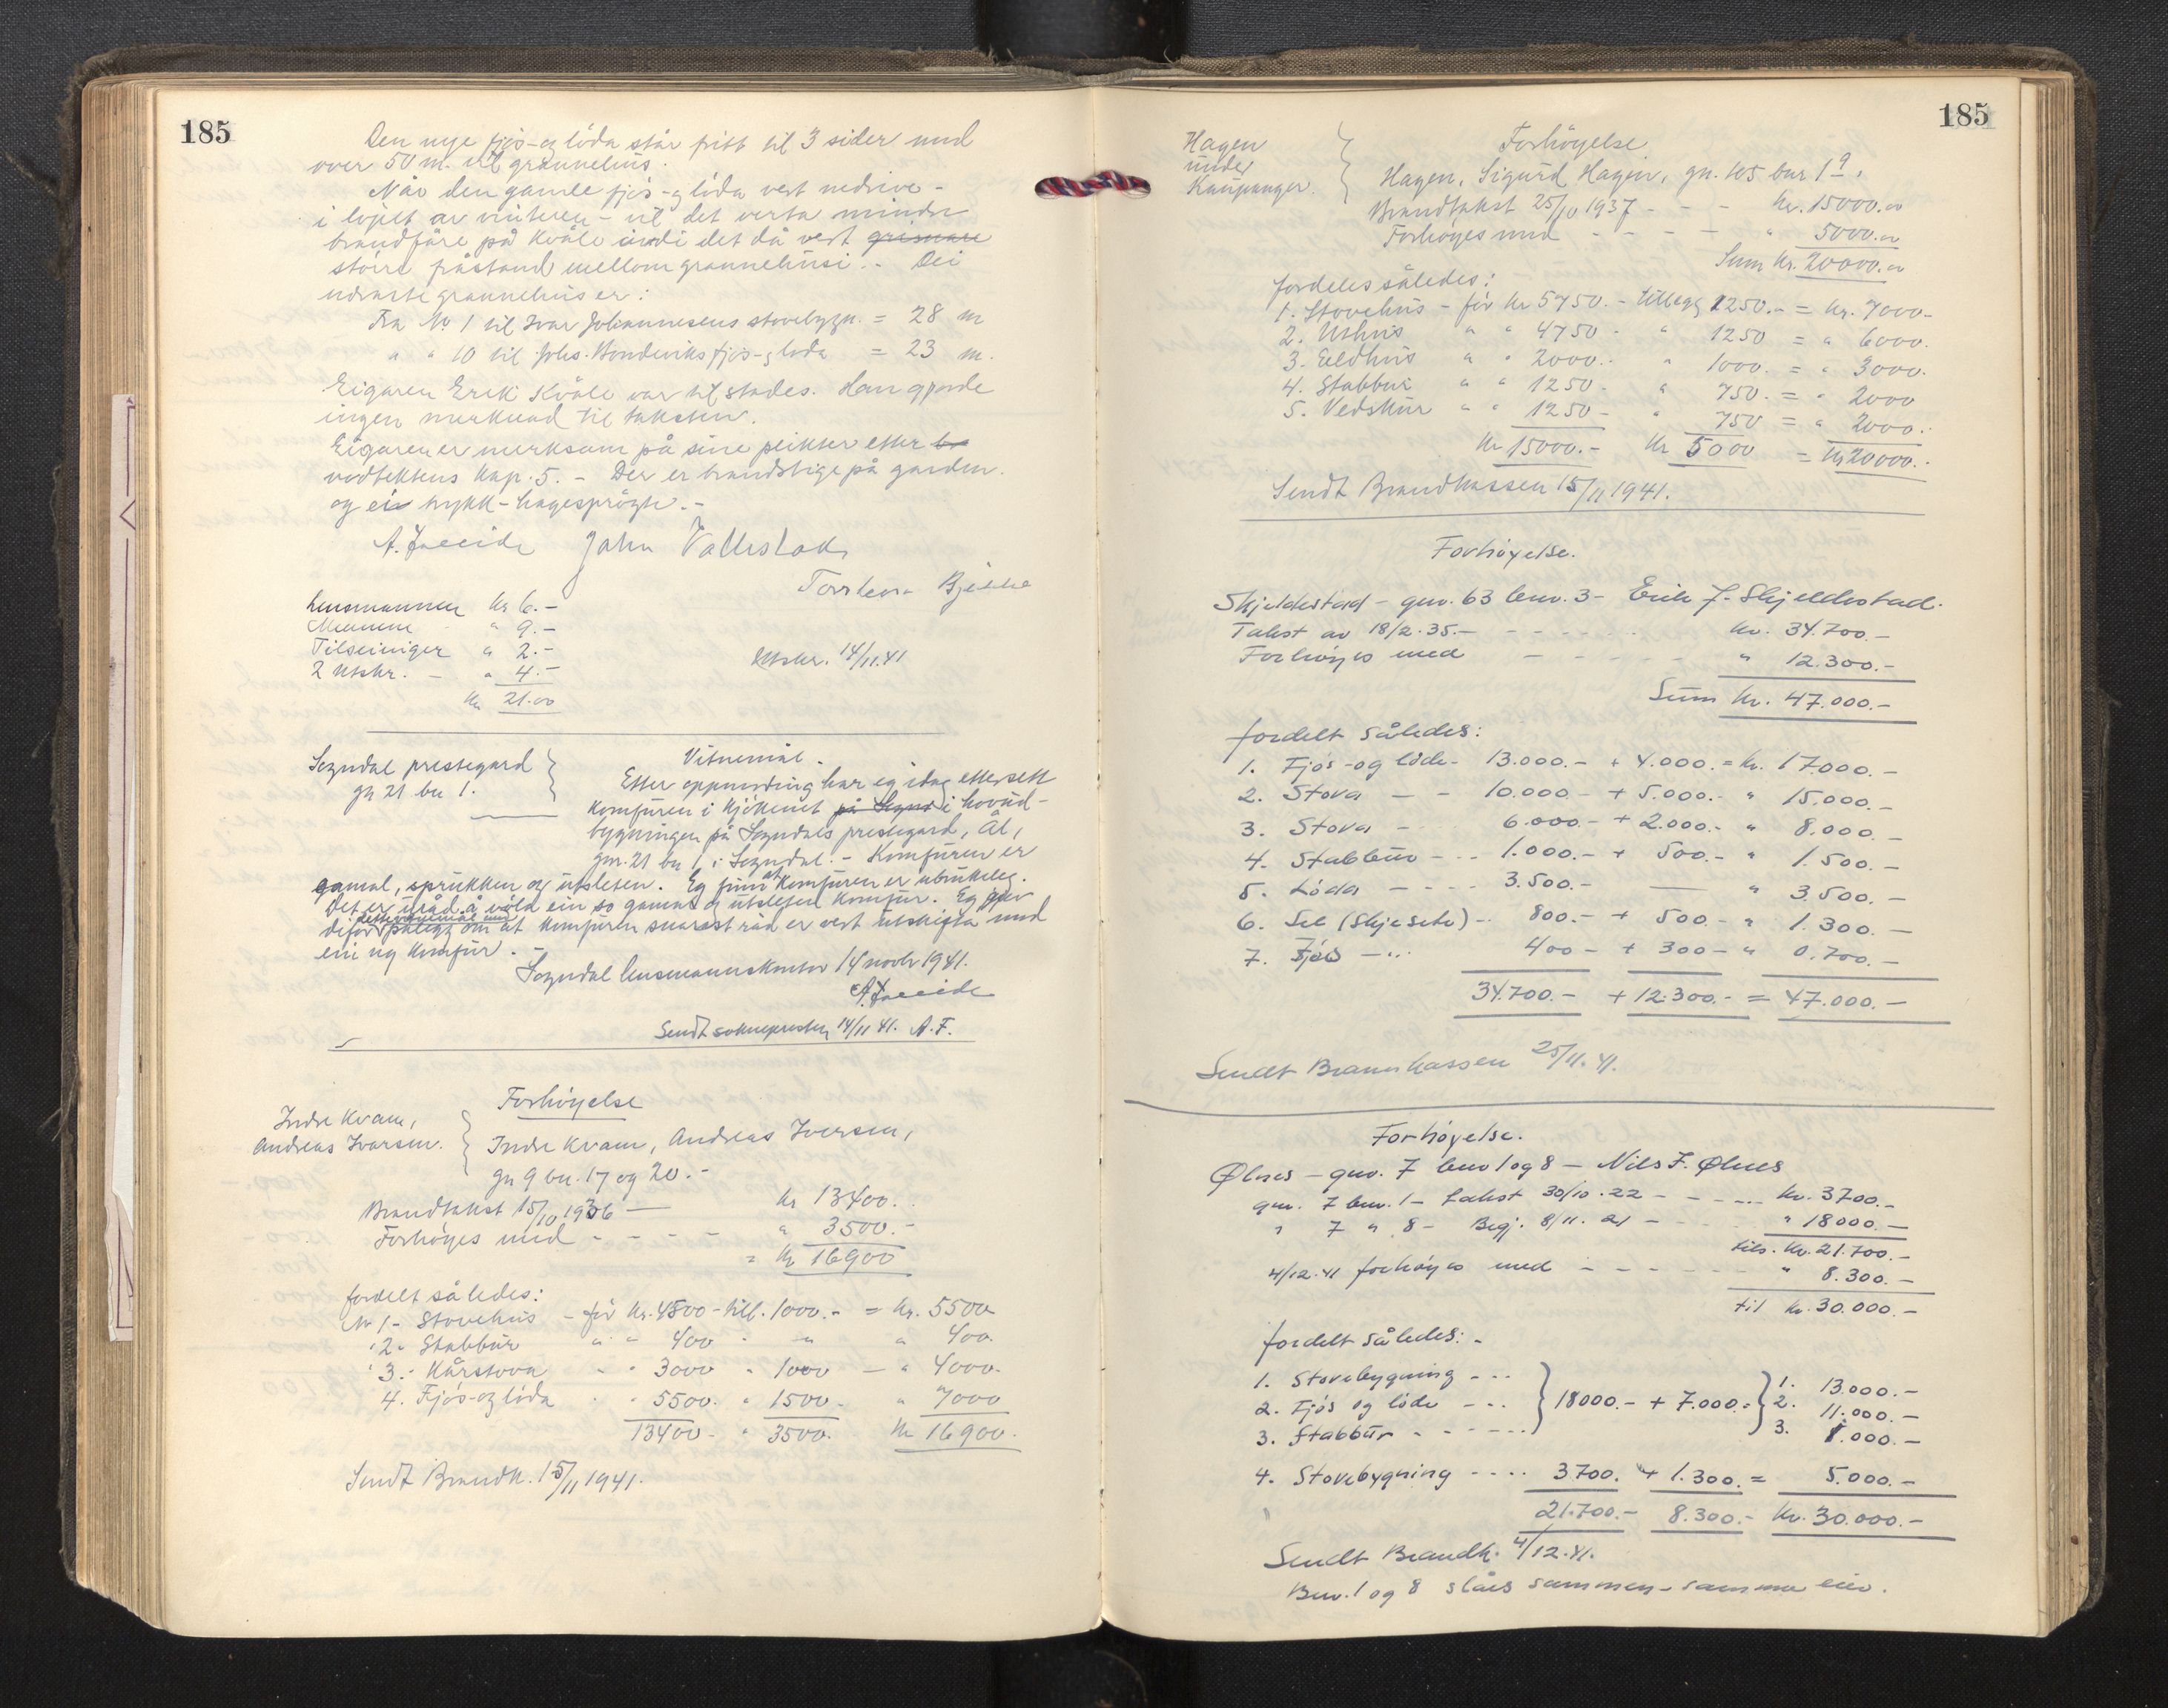 185
Den nye fjøs- og löda står fritt til 3 sider med
over 50 m. til grannehus.
Når den gamle fjös- og löda vert nedrive -
i löpet av vinteren - vil det verta mindre
brandfåre på Kvåle indi det då vert grismare
större fråstand mellom grannehusi. - Dei
næraste grannehus er:
Fra № 1 til Ivar Johannesens stovebygn. = 28 m
" " 10 til Johs. Hondeviks fjös- og löda = 23 m.
Eigaren Erik Kvåle var til stades. Han gjorde
ingen merknad til taksten.
Eigaren er merksam på sine plikter etter br
vedtektens kap. 5. - Der er brandstige på garden.
og ein trykk-hagespröyte. -
A. Falleide John Vallestad
Torstein Bjelle
Lensmannen kr 6.-
Mennene " 9.-
Tilseiinger " 2.-
2 utskr. - " 4.-
Kr 21.00
Utskr. 14/11.41
Sogndal prestegard
gn 21 bn 1.
Vitnemål.
Etter oppmoding har eg idag ettersett
komfüren i kjökenet på Sognd i hovud-
bygningen på Sogndals prestegard, Ål,
gnr. 21 bn 1, i Sogndal. - Komfüren er
gamal, sprukken og utsleten. Eg finn at komfüren er ubrukeleg.
Det er uråd å vøla ein so gamal og utsleten komfür. Eg gjev
difor dette vitnemål um pålegg om at komfüren snarast råd er vert utskifta med
ein ny komfür. -
Sogndal lensmannskontor 14 novbr 1941.
A. Falleide
Sendt sokneprsten 14/11 41. A. F.
Indre Kvam,
Andreas Ivarsen.
Forhöyelse
Indre Kvam, Andreas Iversen,
gn 9 bn. 17 og 20. -
Brandtakst 15/10 1936 - kr 13400.
Forhöyes med - - - - " 3500.-
= Kr 16900
fordelt således:
№ 1 - Stovehus - för kr. 4500 - till. 1000.- = kr. 5500
" 2 - Stabbur " " 400 - " " 400.
" 3. - Kårstova " " 3000 " 1000 - " 4000.
4. Fjös- og löda " " 5500. " 1500 - " 7000
13400 - " 3500. Kr 16900.
Sendt Brandk. 15/11 1941.
185
Hagen
under
Kaupanger.
Forhöyelse
Hagen, Sigurd Hagen, gn. 105 bnr 19.
Brandtakst 25/10 1937 - - - kr. 15000.00
Forhöyes med - - - - " 5000.00
Sum kr. 20000.00
fordeles således:
1. Stovehus - för kr 5750. - tillegg 1250.- = kr. 7000-
2. Uthus " " 4750 - " 1250 = " 6000.
3. Eeldhus " " 2000.- " 1000. = " 3000.
4. Stabbur " " 1250 - " 750. = " 2000
5. Vedskur " " 1250 - " 750 = " 2000.-
Kr 15000.- Kr 5000 = Kr 20000.-
Sendt Brandkassen 15/11 1941.
Forhøyelse.
Skjeldestad - gnr. 63 bnr. 3 - Erik J. Skjeldestad.
Takst av 18/2.35.- - - - - kr. 34.700.-
Forhöyes med - - - - " 12.300.-
Sum kr. 47.000.-
fordelt således:
1. Fjøs - og löde - 13.000.- + 4.000. = kr. 17.000.-
2. Stova - - 10.000 - + 5.000.- " 15.000.-
3. Stova - 6.000.- + 2.000.- " 8.000.-
4. Stabbur - - - 1.000.- + 500.- " 1.500.-
5. Löda - - - - 3.500.- — " 3.500.-
6. Sel (Skjesete) - - 800.- + 500.- " 1.300.-
7. Fjös - ... 400 - + 300 - " 0.700.-
34.700.- + 12.300.- = 47.000.-
Sendt Brannkassen 25/11.41.
Forhøyelse.
Ølnes - gnr. 7 bnr 1 og 8 - Nils F. Ølnes
gnr. 7 bnr. 1 - takst 30/10.22 - - - - kr. 3700.-
" 7 " 8 - Begj. 8/11. 21 - - - " 18000.-
tils. kr. 21.700.-
4/12.41 forhöyes med - - - - - - " 8.300.-
til kr. 30.000.-
fordelt således: -
1. Stovebygning - - - 1. 13.000.-
2. Fjös og löde - - . 18000.- + 7.000.= 2. 11.000.-
3. Stabbur - - - - - . 3. 1.000.-
4. Stovebygning - - - - 3700. + 1.300. = 5.000.-
21.700.- 8.300.- kr. 30.000.-
Sendt Brandk. 4/12.41.
Bnr. 1 og 8 slåes sammen - samme eier.